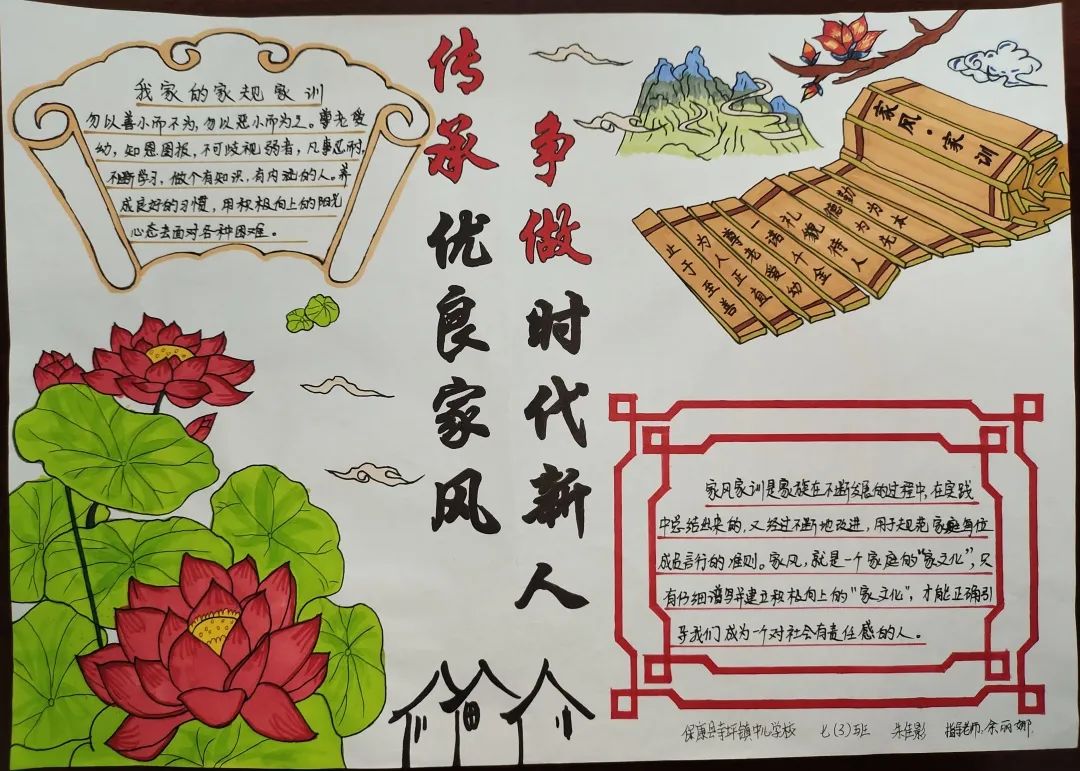 传承优良家风
争做时代新人
我家的家规家训
勿以善小而不为，勿以恶小而为之。尊老爱
幼，知恩图报，不可歧视弱者，凡事忍耐，
不断学习，做个有知识，有内涵的人。养
成良好的习惯，用积极向上的阳光
心态去面对各种困难。
家风·家训
勤为本
德为先
礼貌待人
一语千金
尊老爱幼
为人正直
止于至善
家风家训是家族在不断发展的过程中，在实践
中总结出来的，又经过不断地改进，用于规范家庭每位
成员言行的准则。家风，就是一个家庭的“家文化”，只
有仔细谱写并建立积极向上的“家文化”，才能正确引
导我们成为一个对社会有责任感的人。
保康县寺坪镇中心学校 七(3)班 朱佳影 指导老师：余丽娜